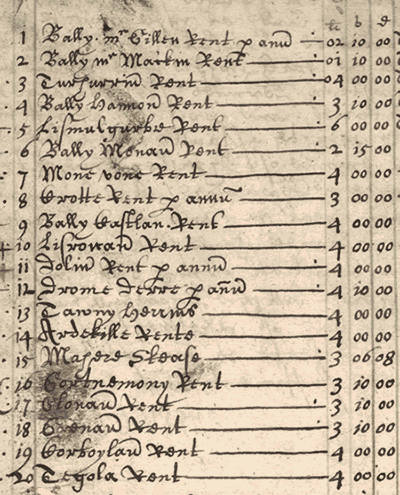 li s d
1 Bally mc Gillen Rent p anū 02 10 00
2 Bally mc Martin Rent 01 10 00
3 Turpurrin Rent 04 00 00
4 Bally Hamon Rent 3 10 00
5 Lismulgurbre Rent 6 00 00
6 Bally Monan Rent 2 15 00
7 Mone vone Rent 4 00 00
8 Crotte Rent p annū 3 00 00
9 Bally Castlan Rent 4 00 00
10 Lisrowan Rent 4 00 00
11 Rent p annū 4 00 00
12 Drome derre p anū 4 10 00
13 Tawny Herrins 4 00 00
14 Ardekille Rente 4 00 00
15 Mahere Slease 3 06 08
16 Gortnemony Rent 3 10 00
17 Clonan Rent 3 10 00
18 Crenan Rent 3 10 00
19 Corboylan Rent 4 00 00
20 Tegola Rent 4 00 00